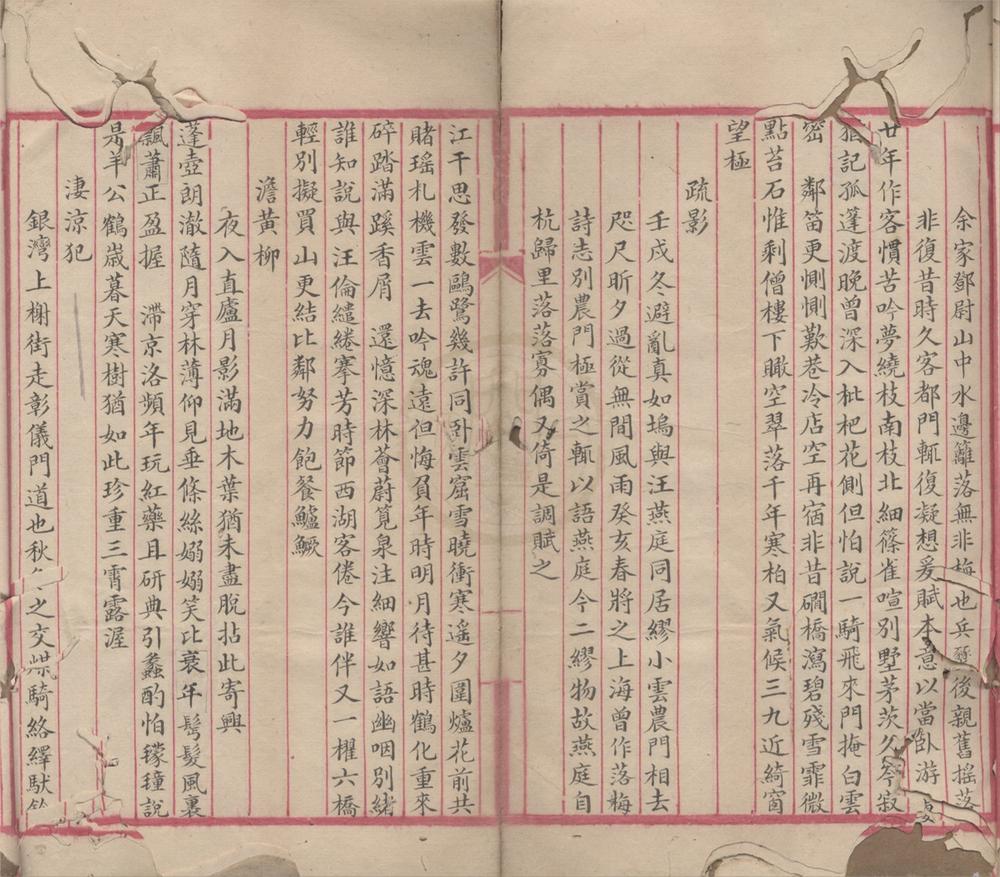 余家鄧尉山中水邊籬落無非梅也兵後親舊摇落
非復昔時久客都門輒復凝想爰賦本意以當臥游
廿年作客慣苦吟夢繞枝南枝北細篠雀喧別墅茅茨久岑寂
猶記孤蓬渡晚曾深入枇杷花側但怕說一騎飛來門掩白雲
密　鄰笛更惻惻歎巷冷店空再宿非昔磵橋瀉碧殘雪霏微
點苔石惟剩僧樓下瞰空翠落千年寒柏又氣候三九近綺窗
望極
疏影
壬戌冬避亂真如塢與汪燕庭同居繆小雲農門相去
咫尺昕夕過從無間風雨癸亥春將之上海曾作落梅
詩志別農門極賞之輒以語燕庭今二繆物故燕庭自
杭歸里落落寡偶又倚是調賦之
江干思發數鷗鷺幾許同卧雲窟雪曉衝寒遥夕圍爐花前共
賭瑤札機雲一去吟魂遠但悔負年時明月待甚時鶴化重來
碎踏滿蹊香屑　還憶深林薈蔚筧泉注細響如語幽咽別緒
誰知說與汪倫繾綣搴芳時節西湖客倦今誰伴又一櫂六橋
輕別擬買山更結比鄰努力飽餐鱸鱖
澹黃柳
夜入直廬月影滿地木葉猶未盡脫拈此寄興
蓬壺朗澈隨月穿林薄仰見垂條絲嫋嫋笑比衰年鬢髮風裏
飄蕭正盈握　滯京洛頻年玩紅藥且研典引蠡酌怕䑃瞳說
是羊公鶴歲暮天寒樹猶如此珍重三霄露渥
淒涼犯
銀灣上榭街走彰儀門道也秋冬之交煤騎絡繹馱